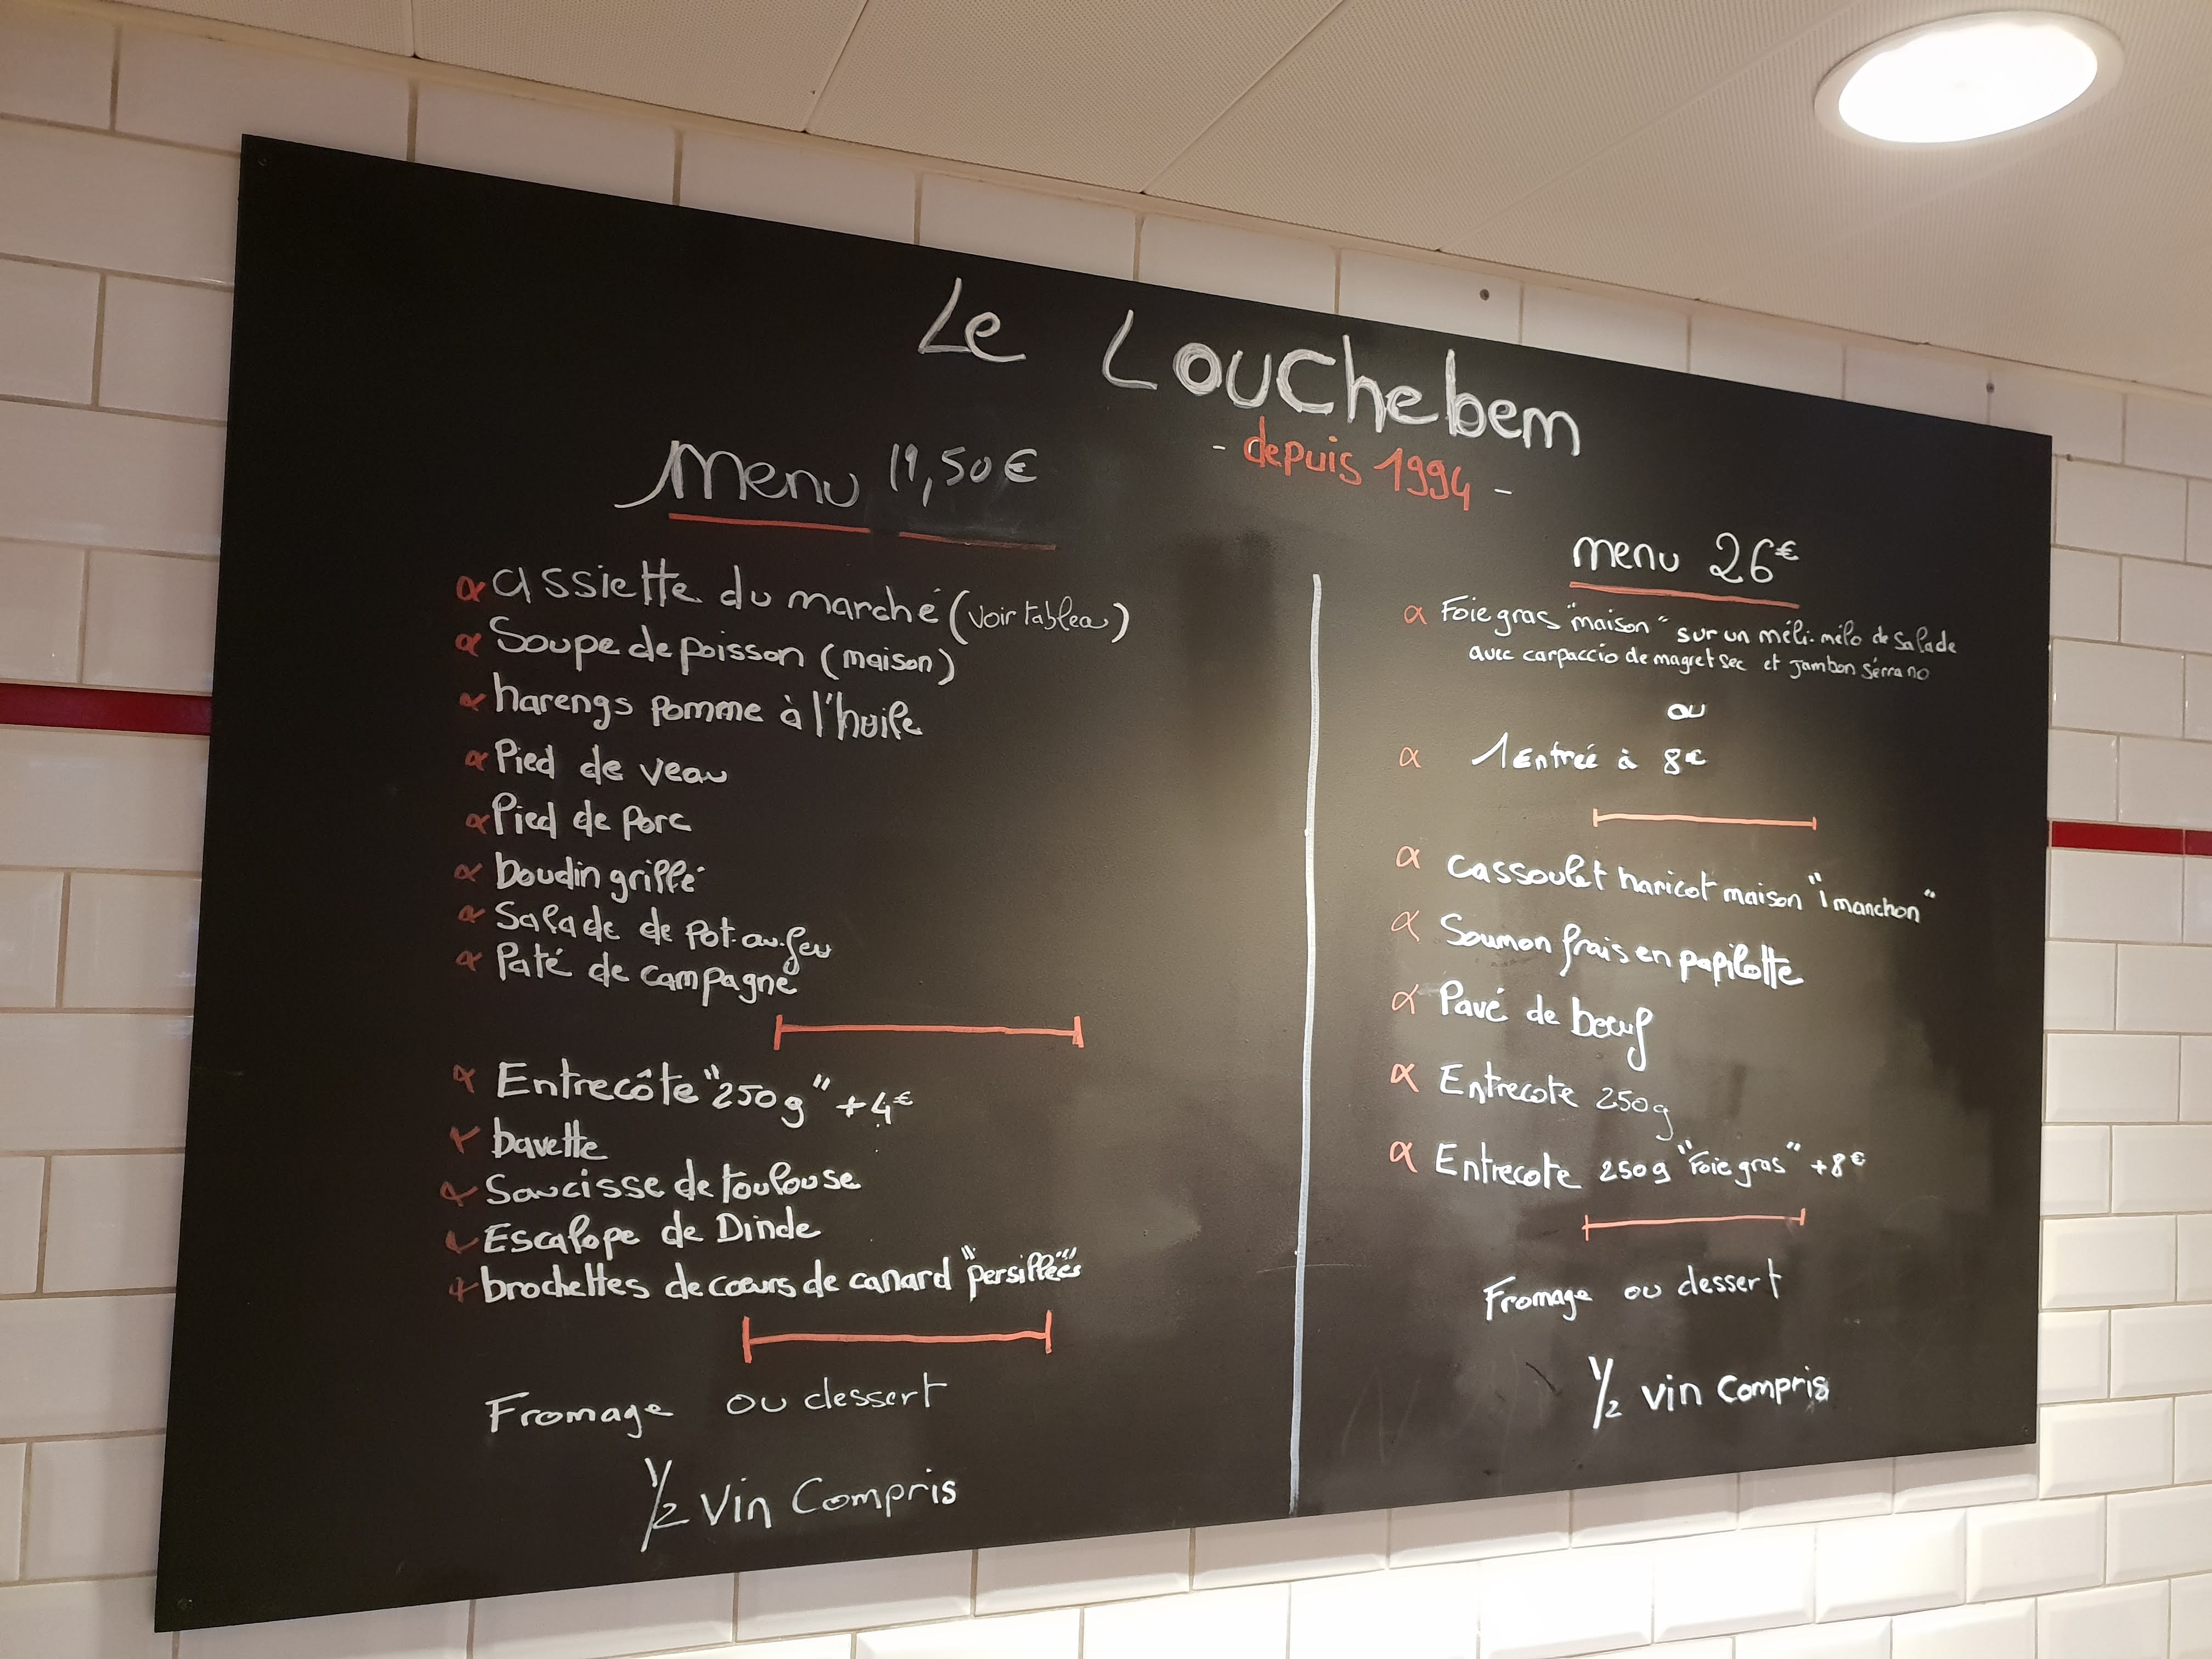 Le Louchebem
- depuis 1994 -
Menu 19,50€
assiette du marché (voir tableau)
Soupe de poisson (maison)
harengs pomme à l'huile
Pied de veau
Pied de Porc
boudin grillé
Salade de Pot-au-feu
Paté de campagne
Entrecôte "250g" +4€
bavette
Saucisse de toulouse
Escalope de Dinde
brochettes de cœurs de canard "persillées"
Fromage ou dessert
1/2 Vin Compris
menu 26€
Foie gras "maison" sur un méli-mélo de Salade
avec carpaccio de magret sec et jambon sérrano
ou
1 Entrée à 8€
Cassoulet haricot maison "1 manchon"
Saumon frais en papillotte
Pavé de bœuf
Entrecote 250g
Entrecote 250g "Foie gras" +8€
Fromage ou dessert
1/2 vin Compris